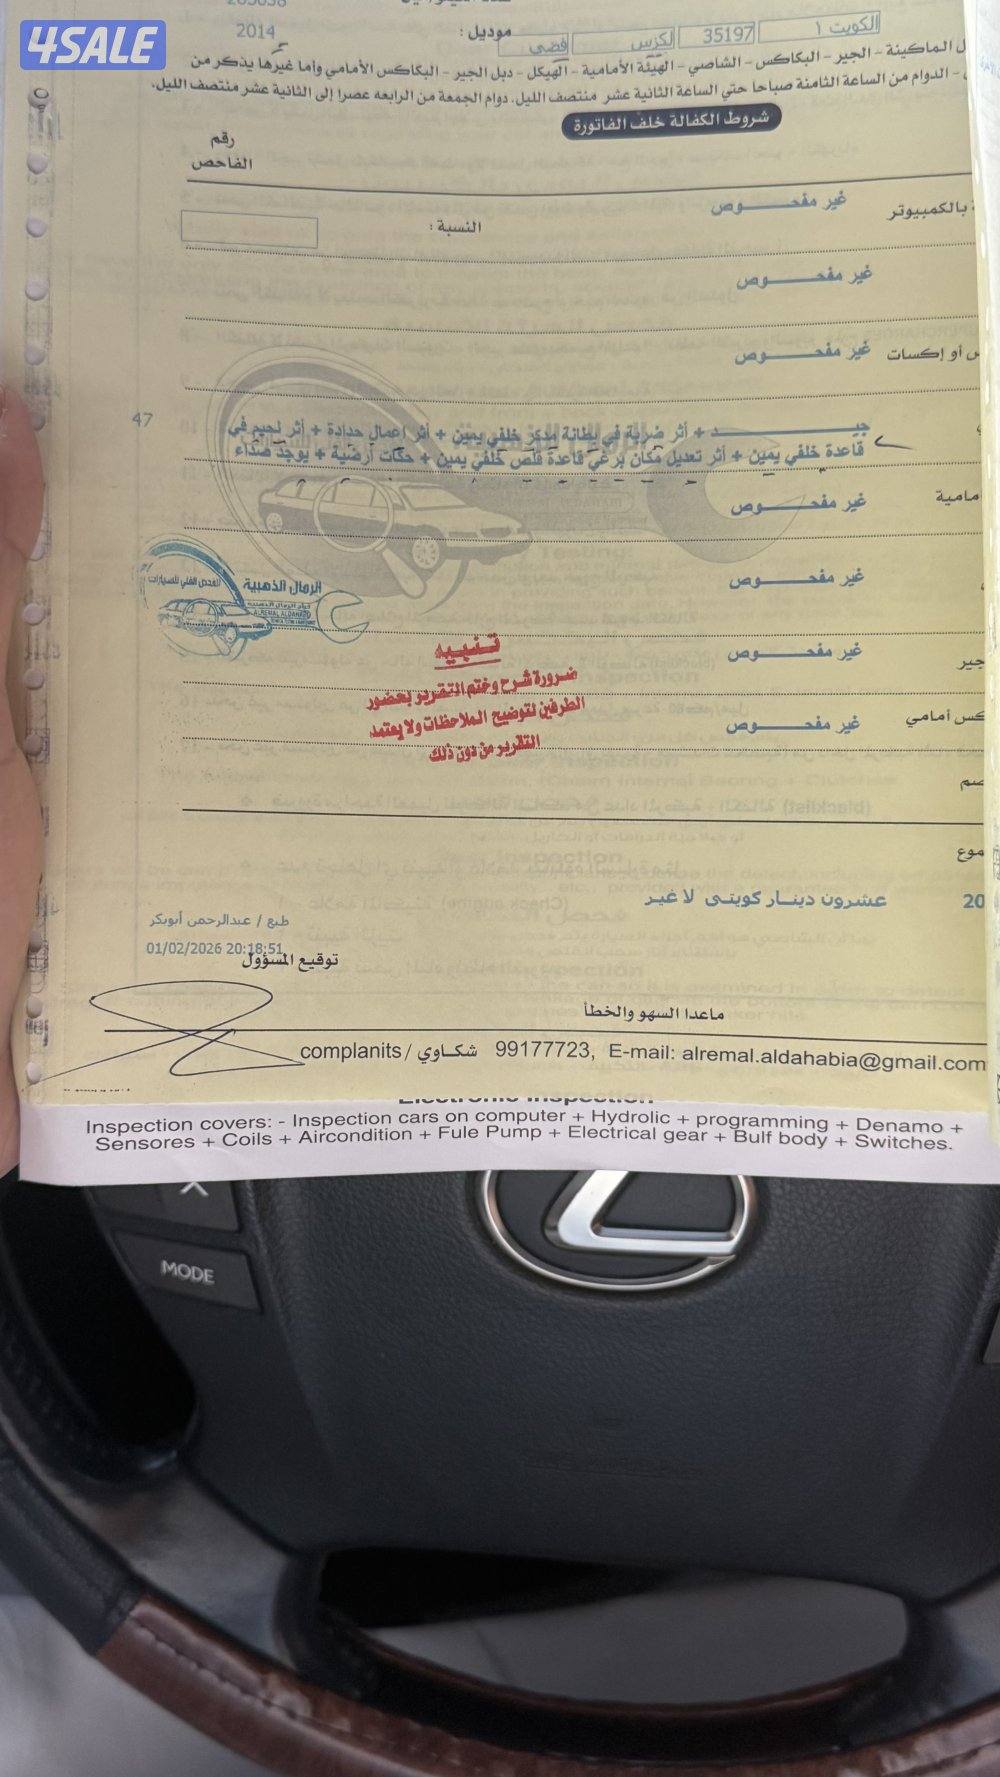 4SALE
2014
موديل :
الكويت ١
35197
لكزس
فضي
ل الماكينة - الجير - البكاكس - الشاصي - الهيئة الأمامية - الهيكل - دبل الجير - البكاكس الأمامي وأما غيرها يذكر من
- الدوام من الساعة الثامنة صباحا حتي الساعة الثانية عشر منتصف الليل. دوام الجمعة من الرابعه عصرا إلى الثانية عشر منتصف الليل.
شروط الكفالة خلف الفاتورة
رقم
الفاحص
بالكمبيوتر
غير مفحـــــوص
النسبة :
غير مفحـــــوص
أو إكسات
غير مفحـــــوص
47
جيـــــد + أثر ضربة في بطانة مدكر خلفي يمين + أثر أعمال حدادة + أثر لحيم في
قاعدة خلفي يمين + أثر تعديل مكان برغي قاعدة قلص خلفي يمين + حكات أرضية + يوجد صداء
مامية
غير مفحـــــوص
غير مفحـــــوص
الرمال الذهبية
للفحص الفني للسيارات
ALREMAL ALDAHABIA
جير
غير مفحـــــوص
تنبيه
ضرورة شرح وختم التقرير بحضور
الطرفين لتوضيح الملاحظات ولا يعتمد
التقرير من دون ذلك
كس أمامي
غير مفحـــــوص
صم
موع
20
عشرون دينار كويتى لا غير
طبع / عبدالرحمن أبوبكر
01/02/2026 20:18:51
توقيع المسؤول
ماعدا السهو والخطأ
complanits / شكاوي 99177723, E-mail: alremal.aldahabia@gmail.com
Electronic Inspection
Inspection covers: - Inspection cars on computer + Hydrolic + programming + Denamo +
Sensores + Coils + Aircondition + Fule Pump + Electrical gear + Bulf body + Switches.
MODE